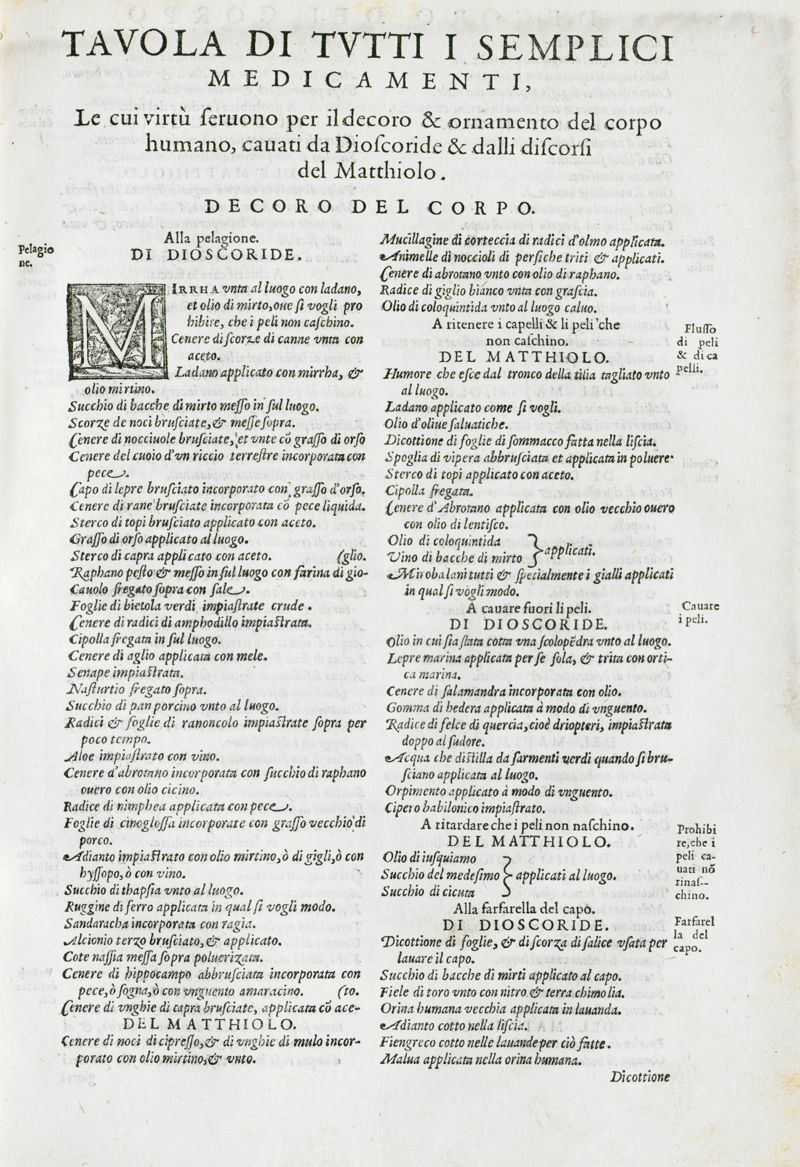 TAVOLA DI TVTTI I SEMPLICI
MEDICAMENTI,
Le cui virtù ſeruono per il decoro & ornamento del corpo
humano, cauati da Dioſcoride & dalli diſcorſi
del Matthiolo.
DECORO DEL CORPO.
Pelagio
ne.
Alla pelagione.
DI DIOSCORIDE.
MIRRHA vnta al luogo con ladano,
et olio di mirto, oue ſi vogli pro
hibire, che i peli non caſchino.
Cenere di ſcorze di canne vnta con
aceto.
Ladano applicato con mirrha, &
olio mirtino.
Succhio di bacche di mirto meſſo in ſul luogo.
Scorze de noci bruſciate, & meſſe ſopra.
Cenere di nocciuole bruſciate, et vnte cō graſſo di orſo
Cenere del cuoio d'vn riccio terreſtre incorporata con
pece.
Capo di lepre bruſciato incorporato con graſſo d'orſo.
Cenere di rane bruſciate incorporata cō pece liquida.
Sterco di topi bruſciato applicato con aceto.
Graſſo di orſo applicato al luogo.
Sterco di capra applicato con aceto. (glio.
Raphano peſto & meſſo in ſul luogo con farina di gio-
Cauolo fregato ſopra con ſale.
Foglie di bietola verdi impiaſtrate crude.
Cenere di radici di amphodillo impiaſtrata.
Cipolla fregata in ſul luogo.
Cenere di aglio applicata con mele.
Senape impiaſtrata.
Naſturtio fregato ſopra.
Succhio di pan porcino vnto al luogo.
Radici & foglie di ranoncolo impiaſtrate ſopra per
poco tempo.
Aloe impiaſtrato con vino.
Cenere d'abrotano incorporata con ſucchio di raphano
ouero con olio cicino.
Radice di nimphea applicata con pece.
Foglie di cinogloſſa incorporate con graſſo vecchio di
porco.
Adianto impiaſtrato con olio mirtino, ò di gigli, ò con
hyſſopo, ò con vino.
Succhio di thapſia vnto al luogo.
Ruggine di ferro applicata in qual ſi vogli modo.
Sandaracha incorporata con ragia.
Alcionio terzo bruſciato, & applicato.
Cote naſſia meſſa ſopra poluerizata.
Cenere di hippocampo abbruſciata incorporata con
pece, ò ſogna, ò con vnguento amaracino. (to.
Cenere di vnghie di capra bruſciate, applicata cō ace-
DEL MATTHIOLO.
Cenere di noci di cipreſſo, & di vnghie di mulo incor-
porato con olio mirtino, & vnto.
Mucillagine di corteccia di radici d'olmo applicata.
Animelle di noccioli di perſiche triti & applicati.
Cenere di abrotano vnto con olio di raphano.
Radice di giglio bianco vnta con graſcia.
Olio di coloquintida vnto al luogo caluo.
A ritenere i capelli & li peli che
non caſchino.
Fluſſo
di peli
& di ca
pelli.
DEL MATTHIOLO.
Humore che eſce dal tronco della tilia tagliato vnto
al luogo.
Ladano applicato come ſi vogli.
Olio d'oliue ſaluatiche.
Dicottione di foglie di ſommacco fatta nella liſcia.
Spoglia di vipera abbruſciata et applicata in poluere.
Sterco di topi applicato con aceto.
Cipolla fregata.
Cenere d'Abrotano applicata con olio vecchio ouero
con olio di lentiſco.
Olio di coloquintida
Vino di bacche di mirto } applicati.
Mirobalani tutti & ſpecialmente i gialli applicati
in qual ſi vogli modo.
A cauare fuori li peli.
Cauare
i peli.
DI DIOSCORIDE.
Olio in cui ſia ſtata cotta vna ſcolopēdra vnto al luogo.
Lepre marina applicata per ſe ſola, & trita con orti-
ca marina.
Cenere di ſalamandra incorporata con olio.
Gomma di hedera applicata à modo di vnguento.
Radice di felce di quercia, cioè driopteri, impiaſtrata
doppo al ſudore.
Acqua che diſtilla da ſarmenti verdi quando ſi bru-
ſciano applicata al luogo.
Orpimento applicato à modo di vnguento.
Cipero babilonico impiaſtrato.
A ritardare che i peli non naſchino.
Prohibi
re, che i
peli ca-
uati nō
rinaſ--
chino.
DEL MATTHIOLO.
Olio di iuſquiamo
Succhio del medeſimo } applicati al luogo.
Succhio di cicuta
Alla farfarella del capo.
Farfarel
la del
capo.
DI DIOSCORIDE.
Dicottione di foglie, & di ſcorza di ſalice vſata per
lauare il capo.
Succhio di bacche di mirti applicato al capo.
Fiele di toro vnto con nitro & terra chimolia.
Orina humana vecchia applicata in lauanda.
Adianto cotto nella liſcia.
Fiengreco cotto nelle lauande per ciò fatte.
Malua applicata nella orina humana.
Dicottione